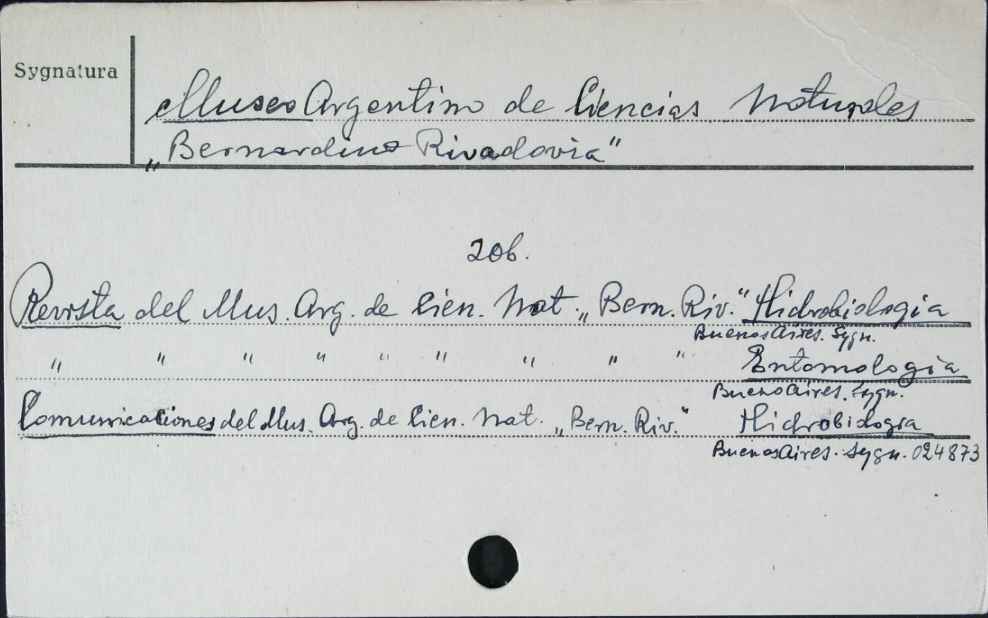 Sygnatura
Museo Argentino de Ciencias Naturales
„Bernardino Rivadavia"
zob.
Revista del Mus. Arg. de Cien. Nat. „Bern. Riv." Hidrobiologia
Buenos Aires. Sygn.
" " " " " " " " " Entomologia
Buenos Aires. Sygn.
Comunicaciones del Mus. Arg. de Cien. Nat. „Bern. Riv." Hidrobiologia
Buenos Aires. Sygn. 024873